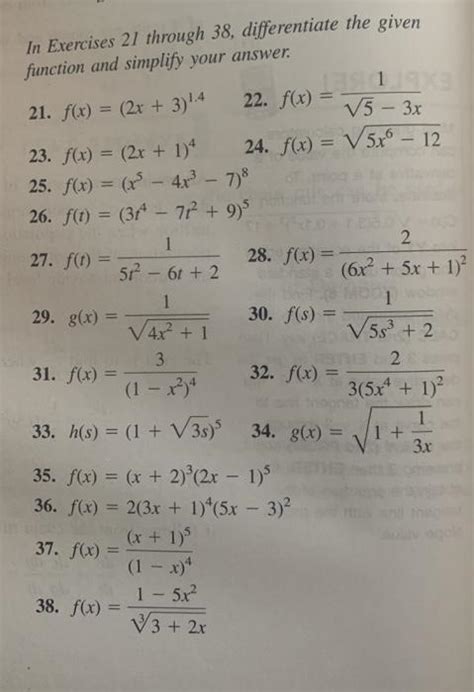 In Exercises 21 through 38, differentiate the given
function and simplify your answer.
21. f(x) = (2x + 3)^1.4 22. f(x) = 1/(√5 − 3x)
23. f(x) = (2x + 1)^4 24. f(x) = √(5x^6 − 12)
25. f(x) = (x^5 − 4x^3 − 7)^8
26. f(t) = (3t^4 − 7t^2 + 9)^5
27. f(t) = 1/(5t^2 − 6t + 2) 28. f(x) = 2/(6x^2 + 5x + 1)^2
29. g(x) = 1/√(4x^2 + 1) 30. f(s) = 1/√(5s^3 + 2)
31. f(x) = 3/(1 − x^2)^4 32. f(x) = 2/(3(5x^4 + 1)^2)
33. h(s) = (1 + √(3s))^5 34. g(x) = √(1 + 1/(3x))
35. f(x) = (x + 2)^3(2x − 1)^5
36. f(x) = 2(3x + 1)^4(5x − 3)^2
37. f(x) = (x + 1)^5/(1 − x)^4
38. f(x) = (1 − 5x^2)/∛(3 + 2x)